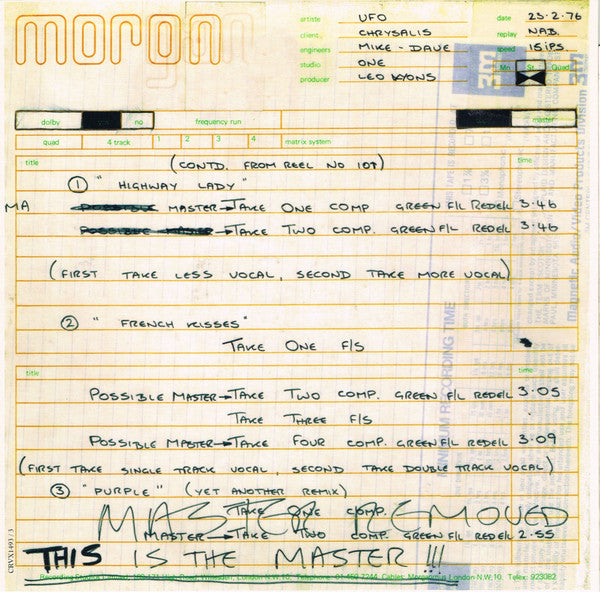 moron
artiste UFO date 23.2.76
client CHRYSALIS replay NAB.
engineers MIKE - DAVE speed 15 IPS.
studio ONE Mn St. Quad
producer LEO KYONS
3m
dolby no frequency run master
quad 4 track 1 2 3 4 matrix system
title (CONTD. FROM REEL NO 107) time
① "HIGHWAY LADY"
MA MASTER→TAKE ONE COMP GREEN F/L RED E/L 3.46
POSSIBLE MASTER→TAKE TWO COMP. GREEN F/L RED E/L 3.46
(FIRST TAKE LESS VOCAL, SECOND TAKE MORE VOCAL)
② "FRENCH KISSES"
TAKE ONE F/S
title time
POSSIBLE MASTER→TAKE TWO COMP. GREEN F/L RED E/L 3.05
TAKE THREE F/S
POSSIBLE MASTER→TAKE FOUR COMP. GREEN F/L RED E/L 3.09
(FIRST TAKE SINGLE TRACK VOCAL, SECOND TAKE DOUBLE TRACK VOCAL)
③ "PURPLE" (YET ANOTHER REMIX)
TAKE ONE COMP.
MASTER REMOVED
MASTER→TAKE TWO COMP. GREEN F/L RED E/L 2.55
THIS IS THE MASTER !!!
London N.W.10. Telephone: 01-459 7244 Cables: London N.W.10. Telex: 923082
CRVX1493/3
MINIMUM RECORDING TIME
Magnetic Audio/Video Products Division 3m